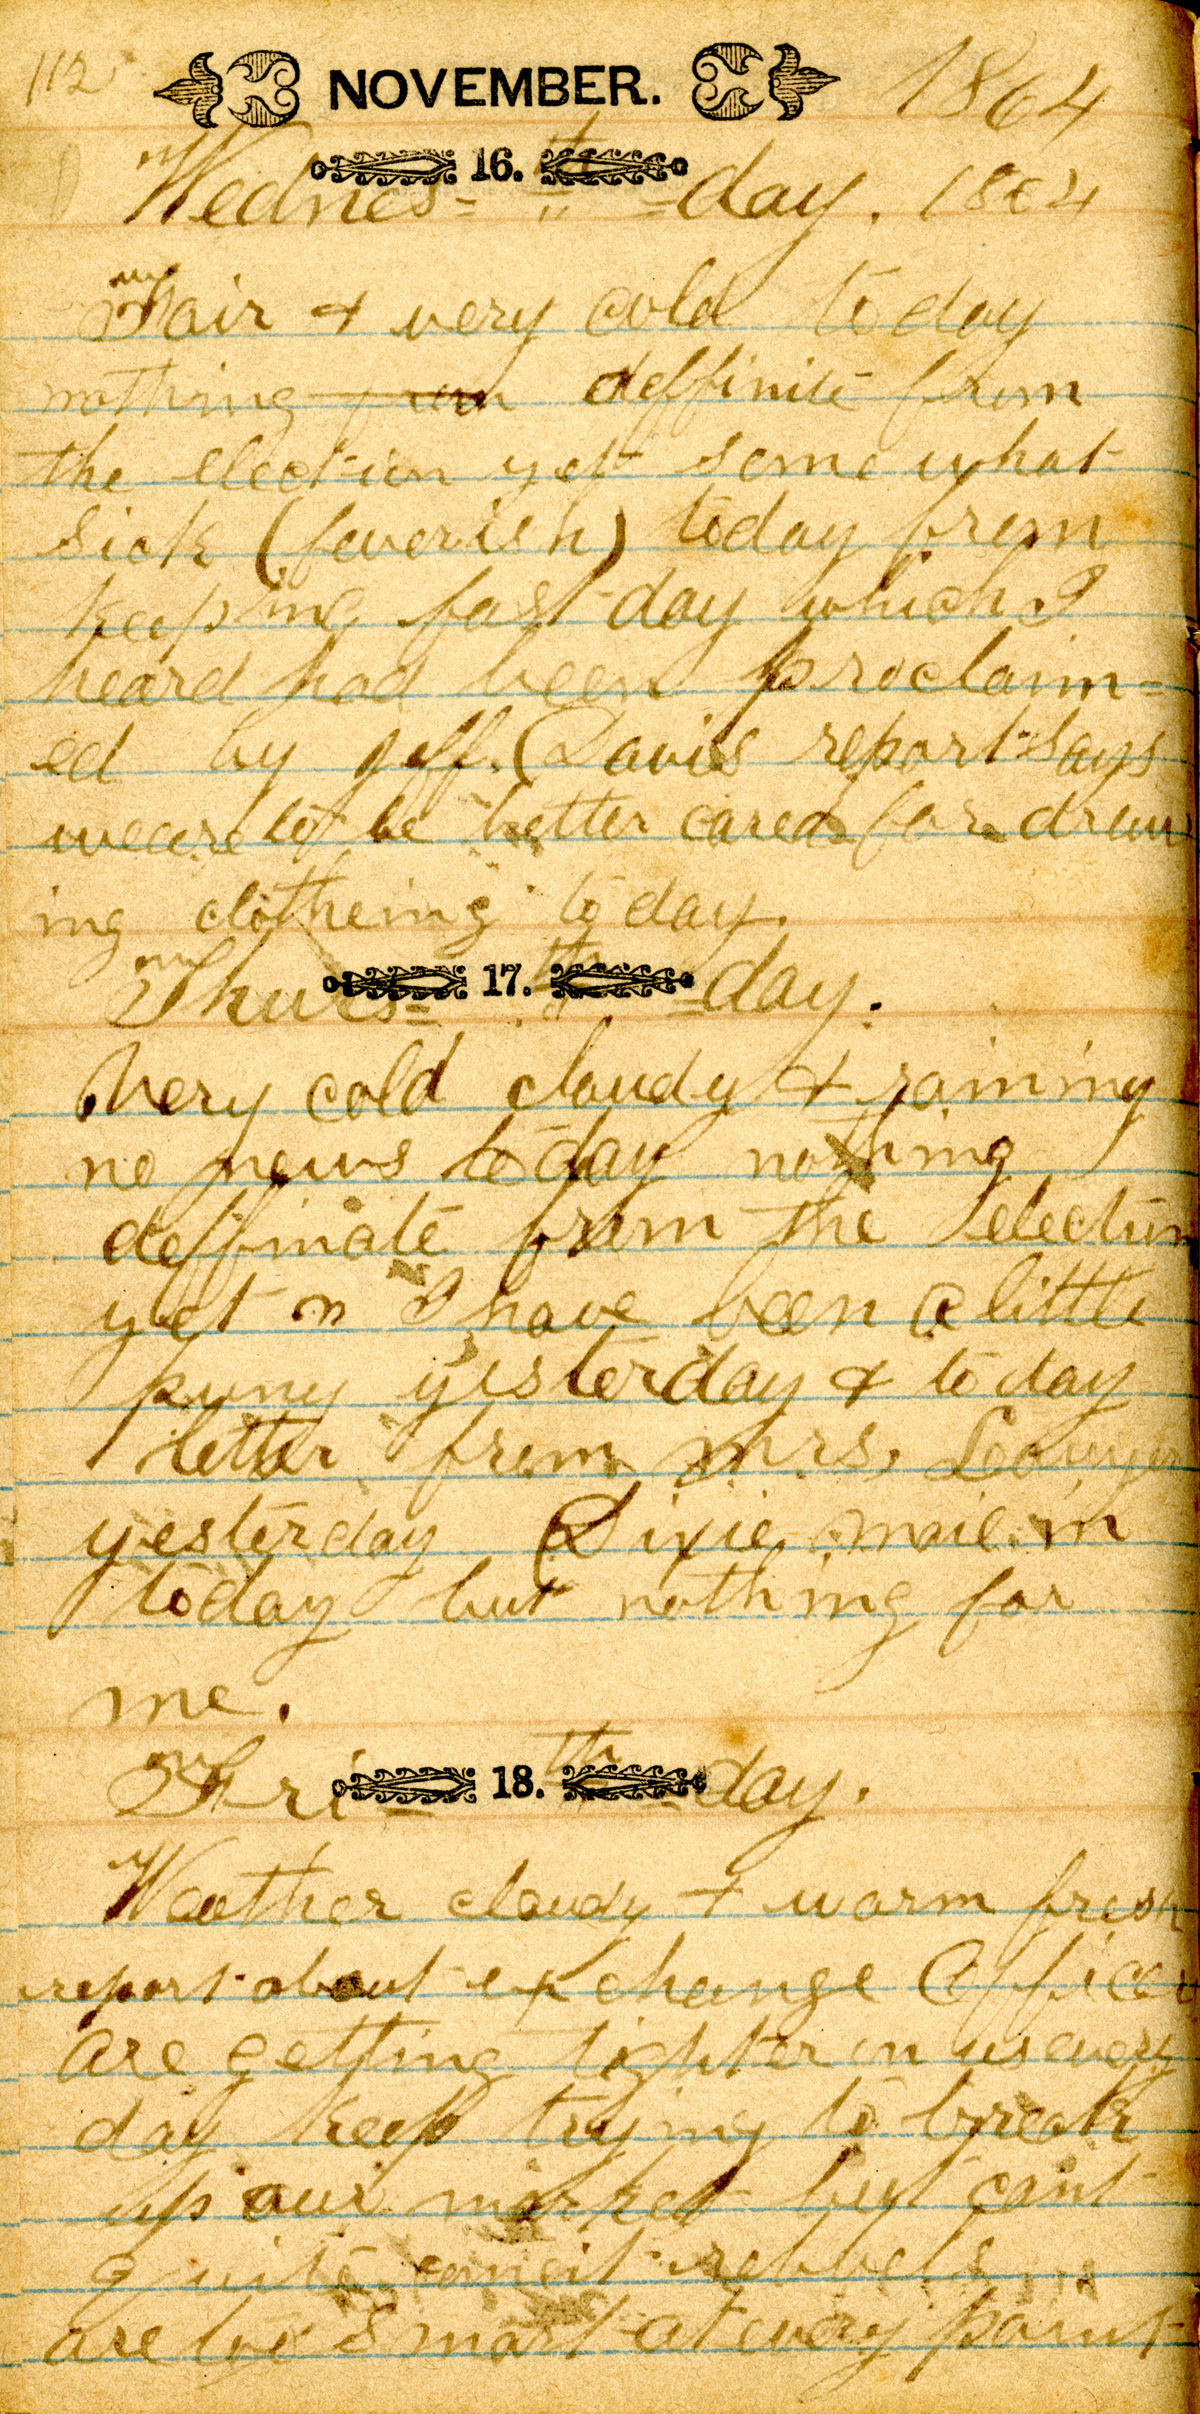 112 NOVEMBER. 1864
Wednes= 16. th =day. 1864
Fair & very cold today
nothing from deffinite from
the election yet some what
sick (feverish) today from
keeping fast day which I
heard had been proclaim=
ed by Jeff. Davis report says
weare to be better cared for draw
ing clotheing today.
Thurs= 17. th =day.
Very cold cloudy & raining
no news today nothing
deffinate from the election
yet I have been a little
puny yesterday & today
letter from Mrs.
yesterday Dixie mail in
today but nothing for
me.
Fri= 18. th =day.
Weather cloudy & warm fresh
report about exchange Officers
are getting tighter on us every
day keep trying to break
up our market but cant
quite rebbels
are too smart at every point